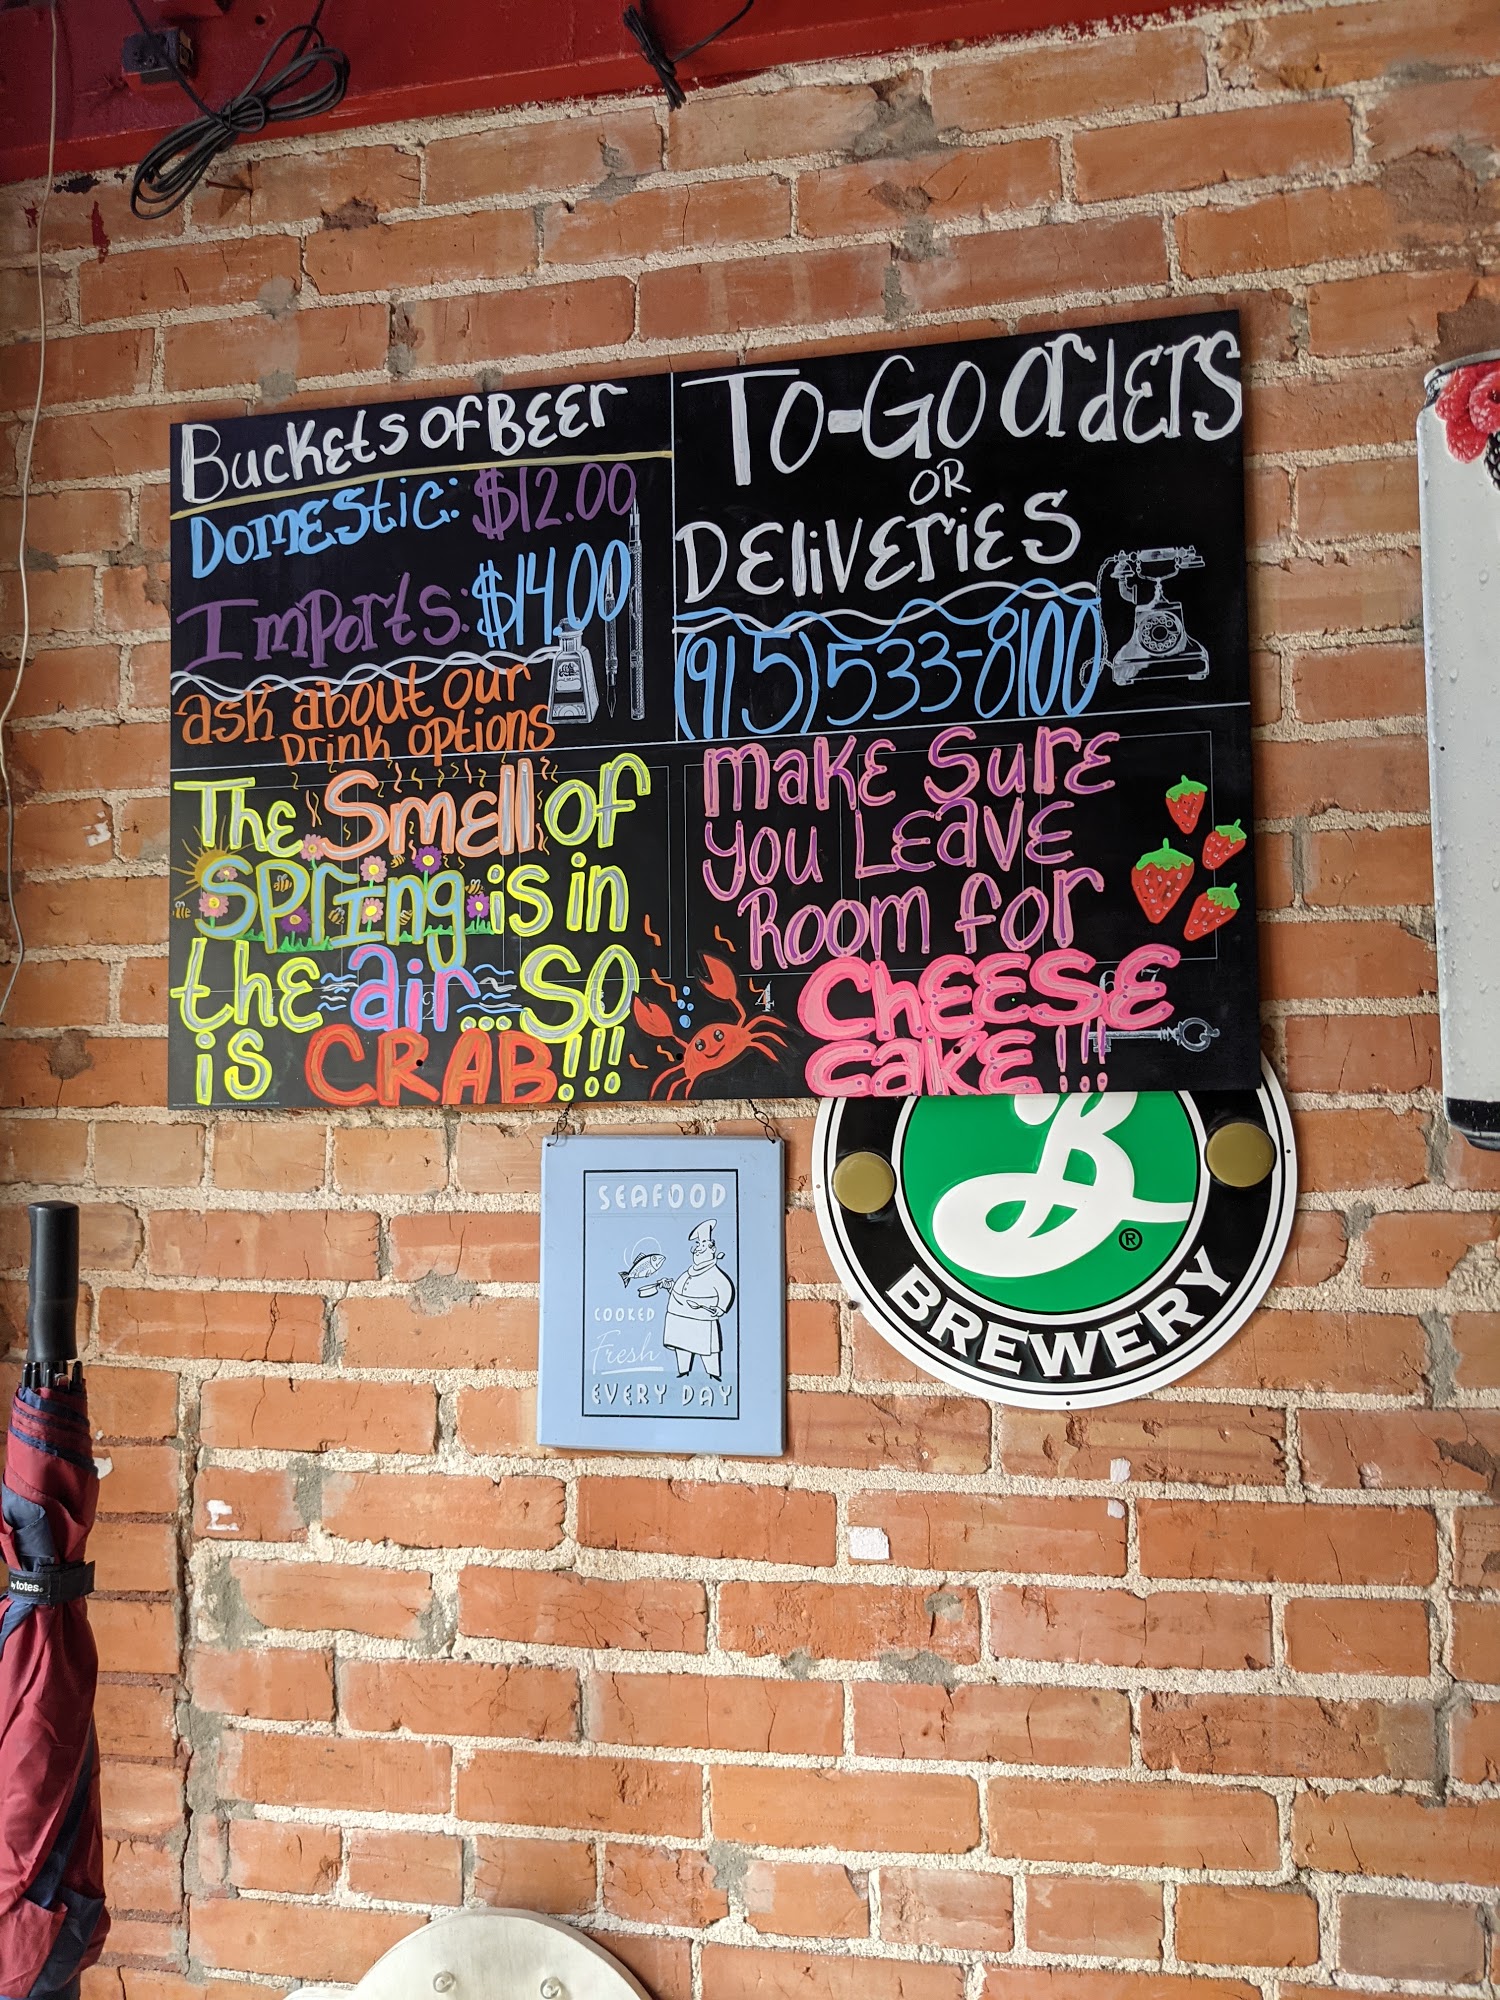 Buckets of Beer
Domestic: $12.00
Imports: $14.00
ask about our
Drink options
To-Go Orders
OR
Deliveries
(915)533-8100
The Smell of
Spring is in
the air...so
is CRAB!!!
make sure
you Leave
Room for
CHEESE
cake!!!
SEAFOOD
COOKED
Fresh
EVERY DAY
B®
BREWERY
totes